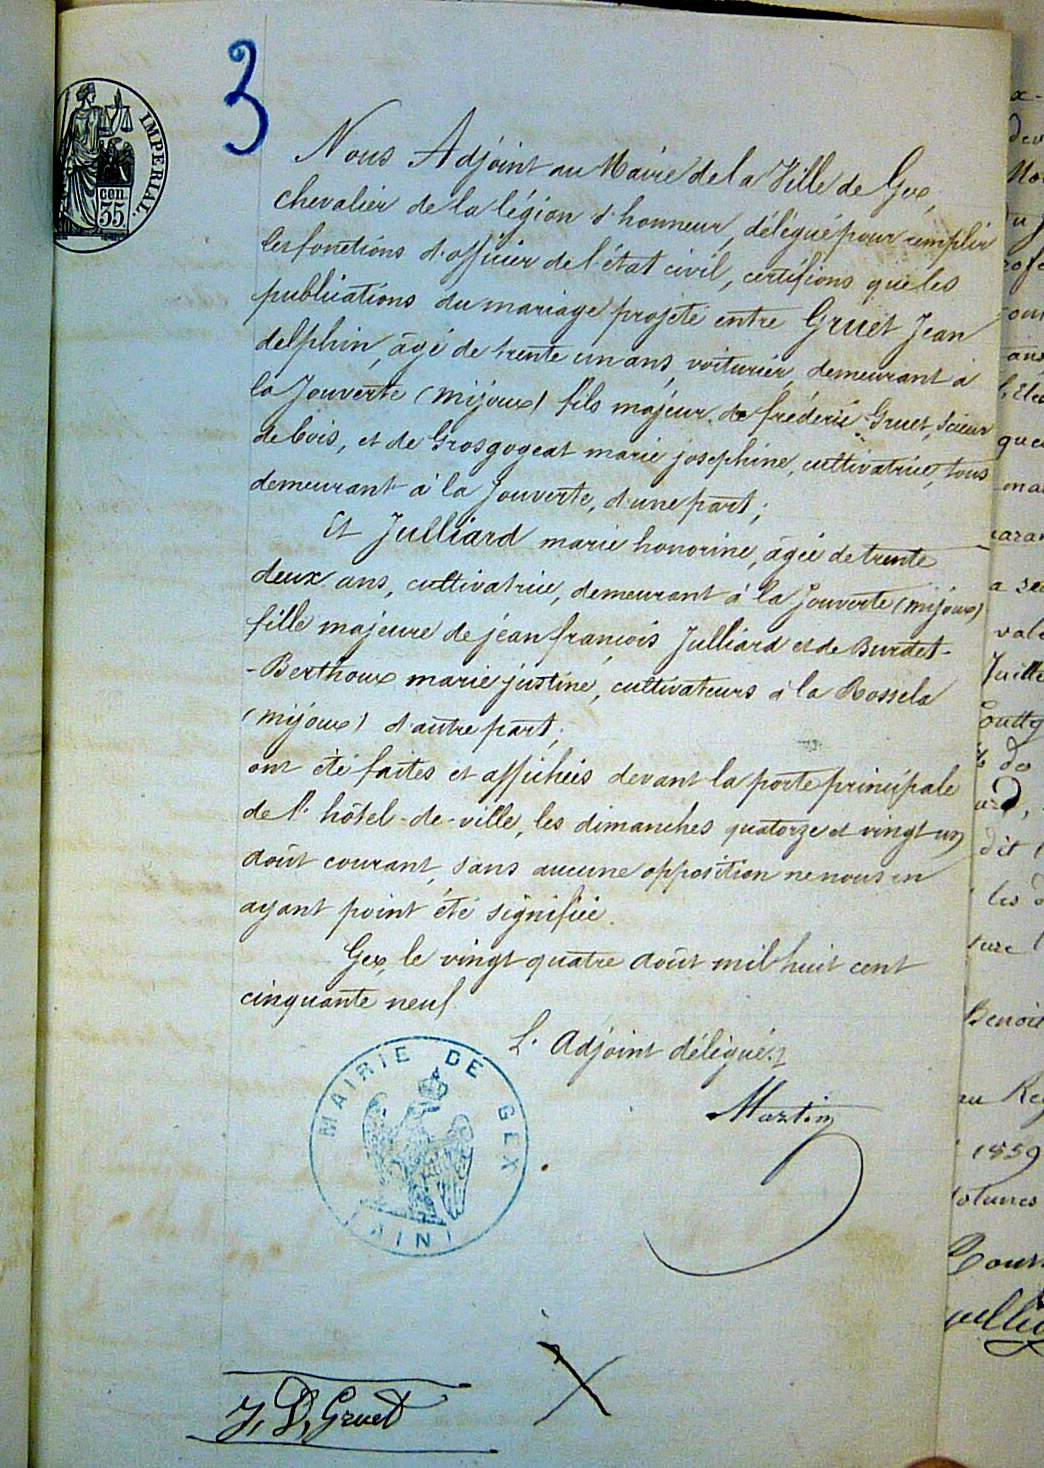 3
IMPERIAL.
cen.
35.
Nous Adjoint au Maire de la Ville de Gex,
chevalier de la légion d'honneur, délégué pour remplir
les fonctions d'officier de l'état civil, certifions que les
publications du mariage projeté entre Gruet Jean
delphin, âgé de trente un ans, voiturier, demeurant à
la Jouverte (mijoux) fils majeur de fréderic Gruet, Scieur
de bois, et de Grosgogeat marie josephine, cultivatrice, tous
demeurant à la Jouverte, d'une part;
Et Julliard marie honorine, âgée de trente
deux ans, cultivatrice, demeurant à la Jouverte (mijoux)
fille majeure de jean françois Julliard et de Burdet-
-Berthoux marie justine, cultivateurs à la Rossela
(mijoux) d'autre part;
ont été faites et affichées devant la porte principale
de l'hôtel-de-ville, les dimanches quatorze et vingt un
août courant, sans aucune opposition ne nous en
ayant point été signifiée.
Gex, le vingt quatre août mil huit cent
cinquante neuf
L'Adjoint délégué,
Martin
MAIRIE DE GEX
(AIN)
J, D, Gruet
X